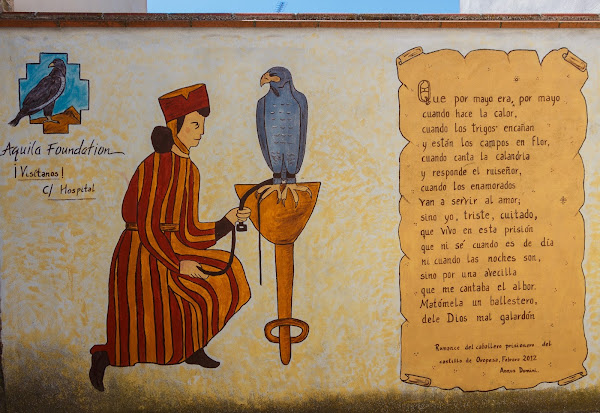 Aquila Foundation
¡Visítanos!
C/ Hospital
Que por mayo era, por mayo
cuando hace la calor,
cuando los trigos encañan
y están los campos en flor,
cuando canta la calandria
y responde el ruiseñor,
cuando los enamorados
van a servir al amor;
sino yo, triste, cuitado,
que vivo en esta prisión
que ni sé cuando es de día
ni cuando las noches son,
sino por una avecilla
que me cantaba el albor.
Matómela un ballestero,
dele Dios mal galardón
Romance del caballero prisionero del
castillo de Oropesa, Febrero 2012
Annus Domini.